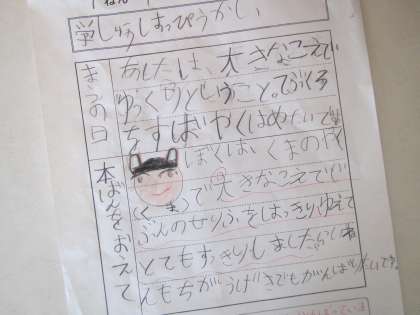 ねん
学しゅうはっぴょうかい
まえの日
あしたは、大きなこえで
ゆっくりということ。てぶくろ
をすばやくはめたいです
本ばんをおえて
ぼくは、くまの役
で大きなこえでじ
(くま)
ぶんのせりふをはっきりゆえて
とてもすっきりしました。らいね
んもちがうげきでもがんばりたいです。